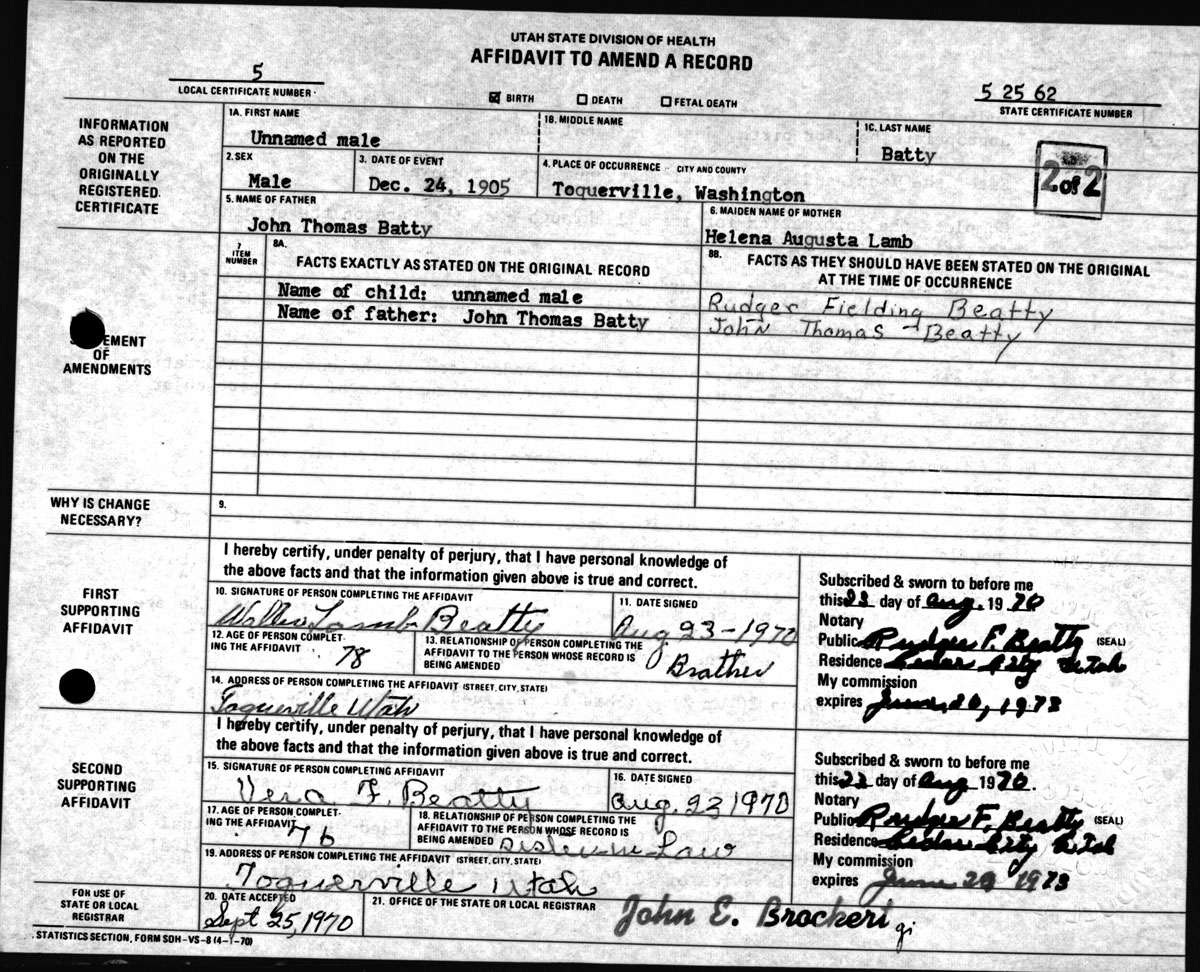 UTAH STATE DIVISION OF HEALTH
AFFIDAVIT TO AMEND A RECORD
5
LOCAL CERTIFICATE NUMBER
BIRTH DEATH FETAL DEATH
5 25 62
STATE CERTIFICATE NUMBER
INFORMATION
AS REPORTED
ON THE
ORIGINALLY
REGISTERED.
CERTIFICATE
1A. FIRST NAME
Unnamed male
1B. MIDDLE NAME
1C. LAST NAME
Batty
2. SEX
Male
3. DATE OF EVENT
Dec. 24, 1905
4. PLACE OF OCCURRENCE - CITY AND COUNTY
Toquerville, Washington
2 of 2
5. NAME OF FATHER
John Thomas Batty
6. MAIDEN NAME OF MOTHER
Helena Augusta Lamb
EMENT
OF
AMENDMENTS
7
ITEM
NUMBER
8A.
FACTS EXACTLY AS STATED ON THE ORIGINAL RECORD
8B.
FACTS AS THEY SHOULD HAVE BEEN STATED ON THE ORIGINAL
AT THE TIME OF OCCURRENCE
Name of child: unnamed male
Rudger Fielding Beatty
Name of father: John Thomas Batty
John Thomas Beatty
WHY IS CHANGE
NECESSARY?
9.
FIRST
SUPPORTING
AFFIDAVIT
I hereby certify, under penalty of perjury, that I have personal knowledge of
the above facts and that the information given above is true and correct.
10. SIGNATURE OF PERSON COMPLETING THE AFFIDAVIT
Lamb Beatty
11. DATE SIGNED
Aug 23-1970
12. AGE OF PERSON COMPLET-
ING THE AFFIDAVIT
78
13. RELATIONSHIP OF PERSON COMPLETING THE
AFFIDAVIT TO THE PERSON WHOSE RECORD IS
BEING AMENDED
Brother
14. ADDRESS OF PERSON COMPLETING THE AFFIDAVIT (STREET, CITY, STATE)
Toquerville Utah
Subscribed & sworn to before me
this 23 day of Aug. 1970
Notary
Public Rudger F. Beatty (SEAL)
Residence Cedar City Utah
My commission
expires June 20, 1973
SECOND
SUPPORTING
AFFIDAVIT
I hereby certify, under penalty of perjury, that I have personal knowledge of
the above facts and that the information given above is true and correct.
15. SIGNATURE OF PERSON COMPLETING AFFIDAVIT
Vera F. Beatty
16. DATE SIGNED
Aug. 23 1970
17. AGE OF PERSON COMPLET-
ING THE AFFIDAVIT
76
18. RELATIONSHIP OF PERSON COMPLETING THE
AFFIDAVIT TO THE PERSON WHOSE RECORD IS
BEING AMENDED
Sister in Law
19. ADDRESS OF PERSON COMPLETING THE AFFIDAVIT (STREET, CITY, STATE)
Toquerville Utah
Subscribed & sworn to before me
this 23 day of Aug 1970.
Notary
Public Rudger F. Beatty (SEAL)
Residence Cedar City Utah
My commission
expires June 20 1973
FOR USE OF
STATE OR LOCAL
REGISTRAR
20. DATE ACCEPTED
Sept 25, 1970
21. OFFICE OF THE STATE OR LOCAL REGISTRAR
John E. Brockert gi
STATISTICS SECTION, FORM SDH-VS-8 (4-1-70)